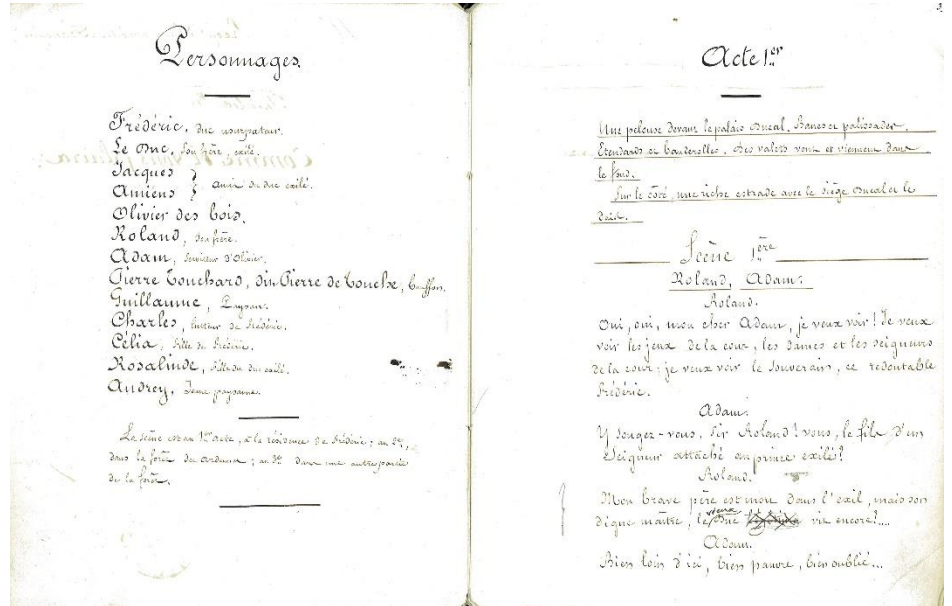 Personnages.
Frédéric, Duc usurpateur.
Le Duc, Son frère, exilé.
Jacques }
Amiens } Amis du duc exilé.
Olivier des bois,
Roland, Son frère.
Adam, Serviteur d'Olivier.
Pierre Touchard, dit Pierre de Touche, bouffon.
Guillaume, Paysan.
Charles, lutteur de Frédéric.
Célia, fille de Frédéric.
Rosalinde, fille du duc exilé.
Audrey, Jeune paysanne.
La scène est au 1er acte, à la résidence de Frédéric ; au 2e,
dans la forêt des Ardennes ; au 3e dans une autre partie
de la forêt.
Acte 1er
Une pelouse devant le palais Ducal. Bancs et palissades.
Etendards et banderolles. Des valets vont et viennent dans
le fond.
Sur le côté, une riche estrade avec le siège Ducal et le
Dais.
Scène 1ère
Roland, Adam.
Roland.
Oui, oui, mon cher Adam, je veux voir ! Je veux
voir les jeux de la cour, les dames et les seigneurs
de la cour ; je veux voir le souverain, ce redoutable
Frédéric.
Adam.
Y songez-vous, Sir Roland ? vous, le fils d'un
Seigneur attaché au prince exilé !
Roland.
Mon brave père est mort dans l'exil, mais son
digne maître, le vieux Duc vit encore !....
Adam.
Bien loin d'ici, bien pauvre, bien oublié...